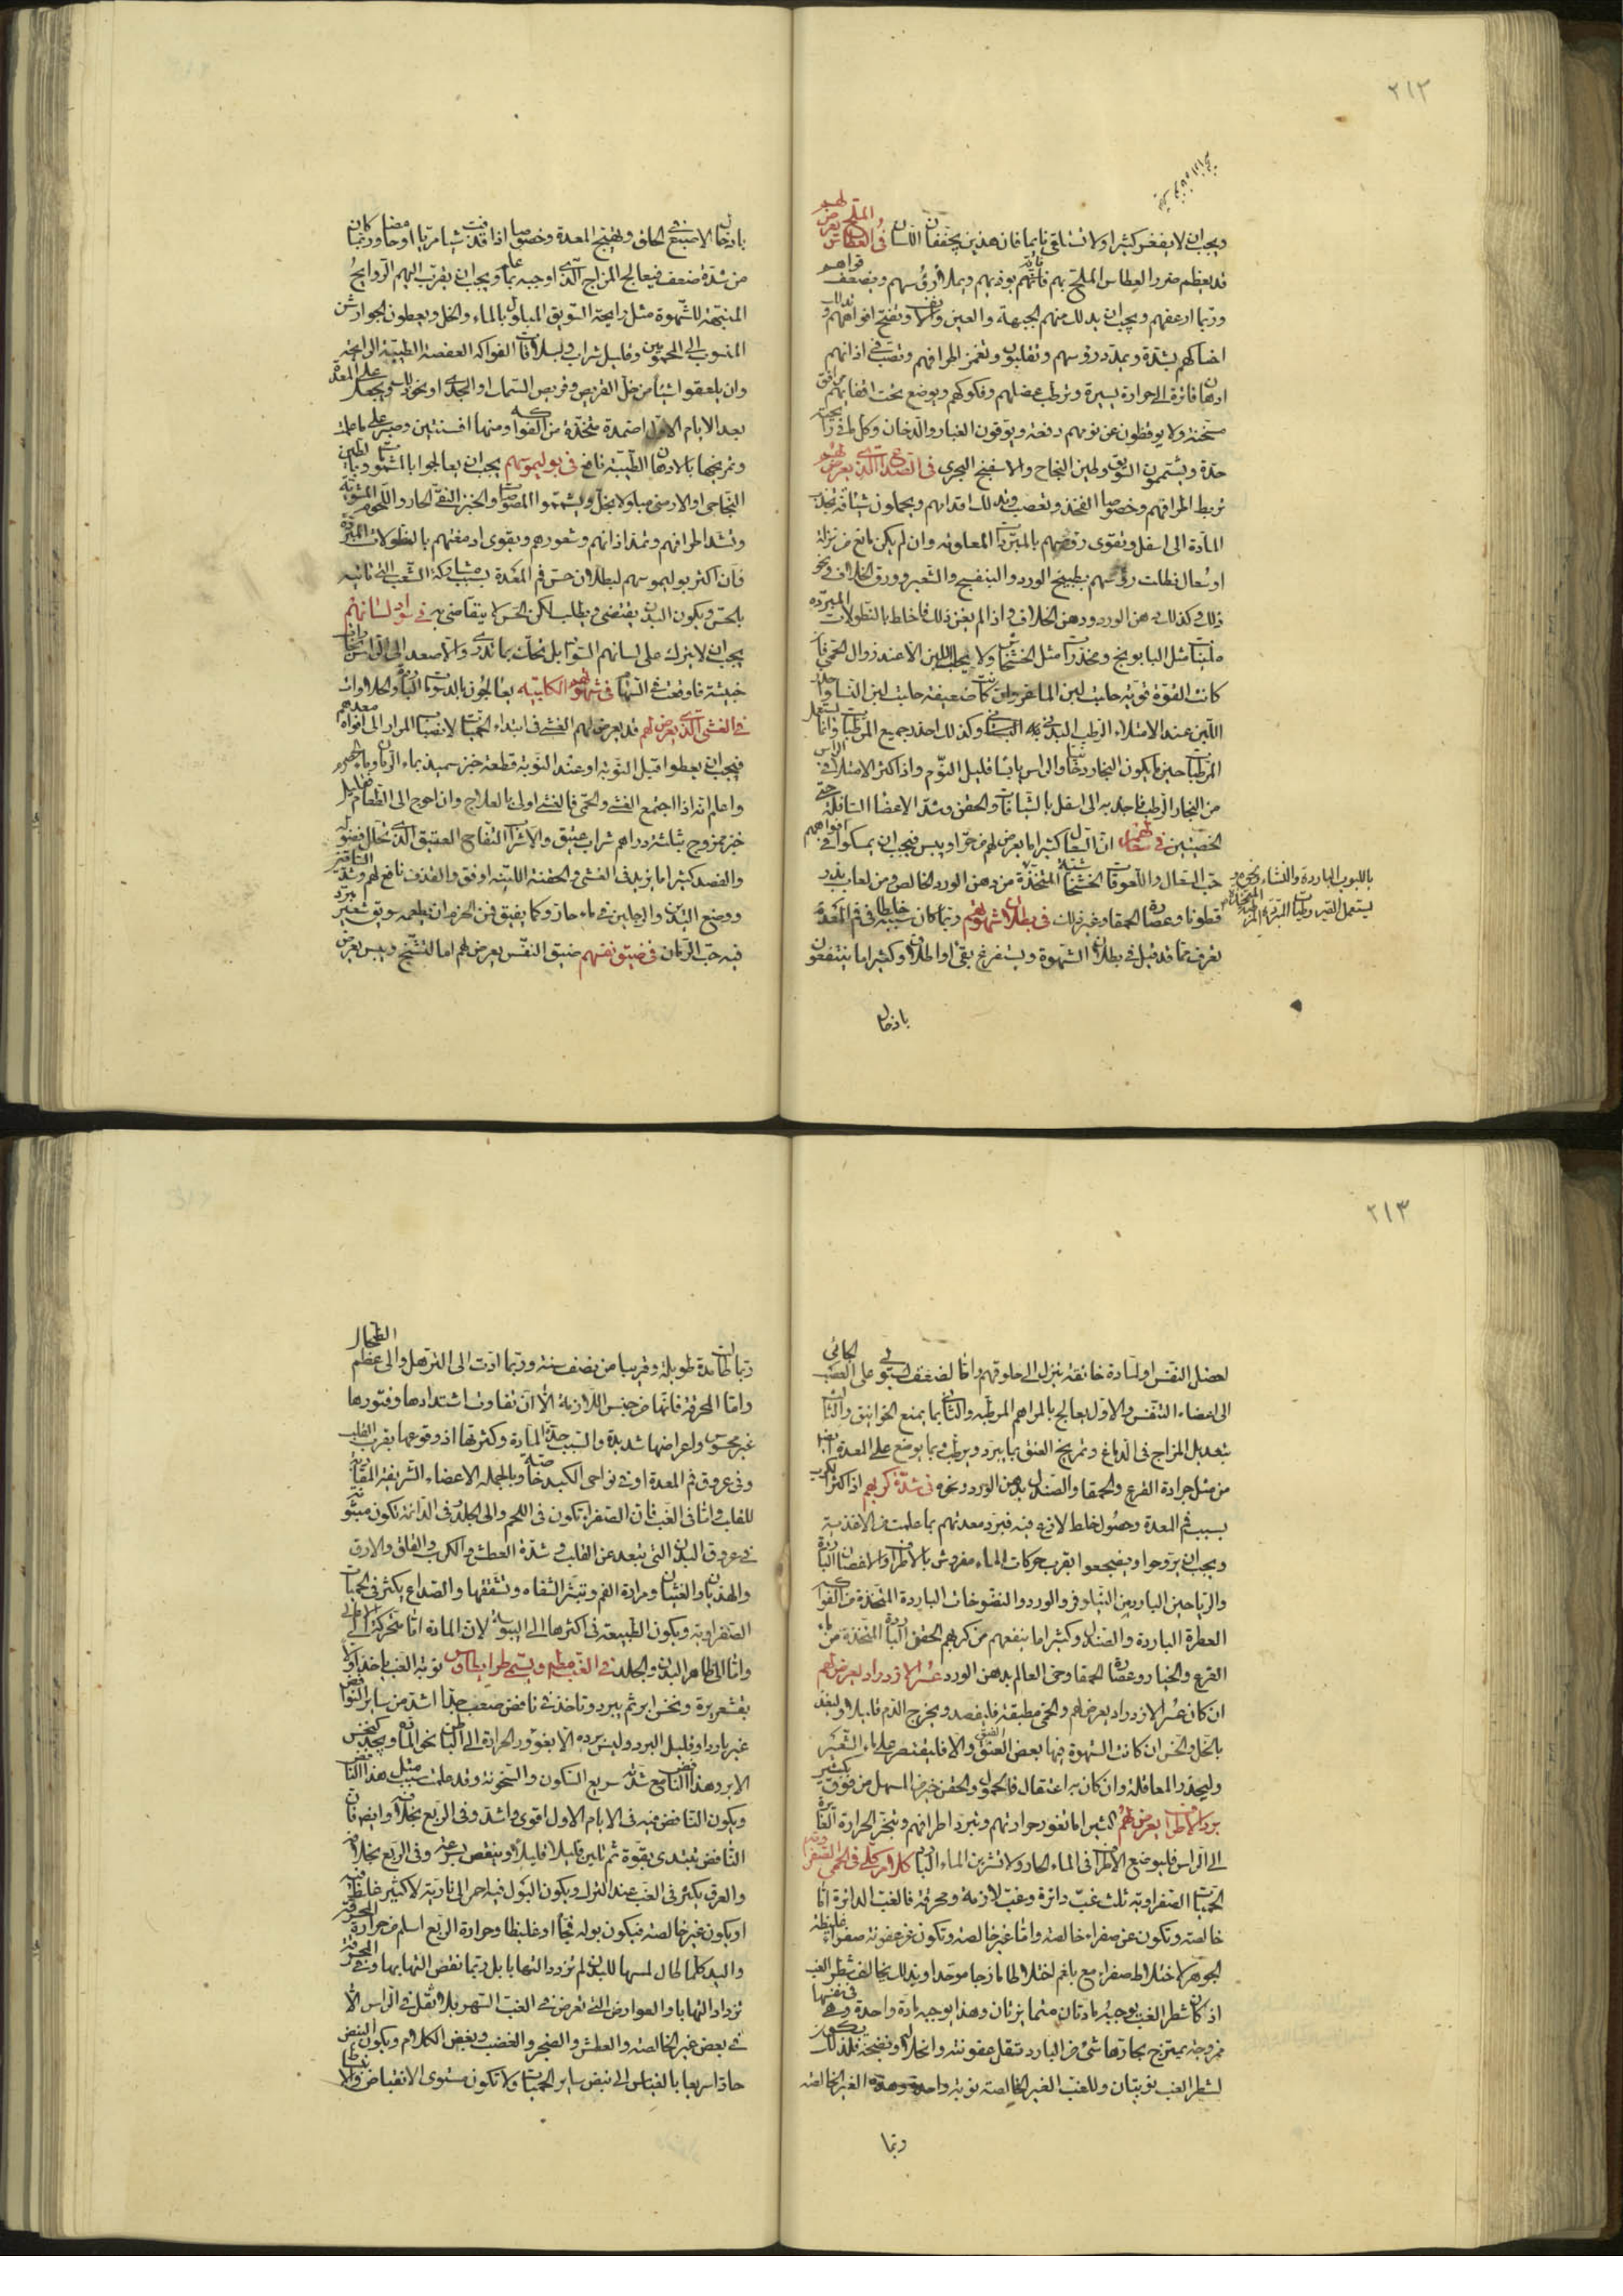 ٢١٢
ويجب ان لا يفغر كثيرا ولا تستلقى نايما فان هذين يجففان اللسان فى العطاس الملح يعرض لهم
قد يعظم ضرر العطاس الملح بهم فانه يوذيهم ويملا رؤسهم ويضعف قواهم
وربما ارعفهم ويجب ان يدلك منهم الجبهة والعين والانف وتفتح افواههم و
احناكهم بشدة ويمدد رؤسهم وتغمز اطرافهم ويصب فى اذانهم
ادهان فاترة الى حرارة يسيرة وترطب عضلهم وفكوكهم ويوضع تحت اقفايهم مرافق
مسخنة ولا يوقظون عن نومهم دفعة ويوقون الغبار والدخان وكل ما فى رايحته
حدة ويشتمون السويق وطين النجاح والاسفنج البحرى فى الصداع الذى يعرض لهم
تربط اطرافهم وخصوصا الفخذ وتعصب وتدلك اقدامهم ويحملون شيافة تجذب
المادة الى اسفل وتقوى رؤسهم بالمبردات المعلومة وان لم يكن مانع من نزلة
او سعال نطلت رؤسهم بطبيخ الورد والبنفسج والشعير وورق الخلاف ونحو
ذلك وكذلك دهن الورد ودهن الخلاف واذا لم يغن ذلك فاخلط بالنطولات المبردة
ملينات مثل البابونج ومخدرات مثل الخشخاش ولا يحلب اللبن الا عند زوال الحمى فان
كانت القوة قوية حلبت لبن الماعز وان كانت ضعيفة حلبت لبن النسا واحذر
اللبن عند الامتلاء الرطب البدنى وكذلك احذر جميع المرطبات وانما تستعمل
المرطبات حين ما يكون البخار دخانيا والراس يابسا قليل النوم واذا كثر الامتلاء فى الراس
من البخار الرطب فاجذبه الى اسفل بالشيافات والحقن وشد الاعضا السافلة حتى
الخصيتين فى سعالهم ان السعال كثيرا ما يعرض لهم من حر او يبس فيجب ان يمسكوا فى افواههم
حب السعال واللعوقات الخشخاشية المتخذة من دهن الورد الخالص ومن لعاب بذر
قطونا وعصارة الحمقا وغير ذلك فى بطلان شهوتهم وربما كان سببه خلطا فى فم المعدة
تعرف مما قد قيل فى بطلان الشهوة ويستفرغ بقى او اطلاق وكثيرا ما ينتفعون
باللبوب الباردة والنشاء ونحوه
يستعمل القيروطيات المبردة المرطبة
بادخال
بادخال الاصبع فى الحلق وتهييج المعدة وخصوصا اذا قذفت شيا مريا او حامضا وربما كان
من شدة ضعف فيعالج المزاج الذى اوجبه بما علم ويجب ان يقرب اليهم الروايح
المنبهة للشهوة مثل رايحة السويق المبلول بالماء والخل ويعطون الجوارشن
المنسوب الى المحمومين وقليل شراب وسلاقات الفواكه العفصة الطيبة الرايحة
وان يلعقوا شيئا من خل القريص وقريص السماك او الجدى او نحو ذلك ويجعل على المعدة
بعد الايام الاول اضمدة متخذة من الفواكه ومنها افسنتين وصبر على ما علمت
وتمريخها بالادهان الطيبة نافع فى بوليموسهم يجب ان يعالجوا بالمشمومات وبالطين
النجاحى او الارمنى مبلولا بخل ويشمموا المصوصات والخبز النقى الحار واللحوم المشوية
وتشد اطرافهم وتمد اذانهم وشعورهم ويقوى ادمغتهم بالنطولات المبردة
فان اكثر بوليموسهم لبطلان حس فم المعدة بسبب مشاركة الشعب التى تاتيه
بالحس ويكون البدن يقتضى ويطلب لكن الحس لا يتقاضى به فى سواد لسانهم
يجب ان لا يترك على لسانهم السواد بل يحك بما تدرى والا صعد الى الراس بخارات
خبيثة فاوقعت فى السرسام فى شهوتهم الكلبية يعالجون بالدسومات الباردة والحلاوات
فى الغشى الذى يعرض لهم قد يعرض لهم الغشى فى ابتداء الحميات لانصباب المرار الى افواه معدهم
فيجب ان يعطوا قبل النوبة او عند النوبة قطعة خبز سميذ بماء الرمان وبالحصرم
واعلم انه اذا اجتمع الغشى والحمى فالغشى اولى بالعلاج وان احوج الى الطعام قليل
خبز ممزوج بثلثة دراهم شراب عتيق والاشراب التفاح العتيق الذى تحلل فضوله
والفصد كثيرا ما يزيد فى الغشى والحقنة اللينة اوفق والقذف نافع لهم وشد الساقين
ووضع اليدين والرجلين فى ماء حار وكما يفيق فمن الحزم ان يطعمه سويق شعير مبرد
فيه حب الرمان فى ضيق نفسهم ضيق النفس يعرض لهم اما لتشنج ويبس يعرض
٢١٣
لعضل النفس او لمادة خانقة تنزل الى حلوقهم واما لضعف يستولى على العصب الجائى
الى اعضاء التنفس والاول يعالج بالمراهم المرطبة والثانى بما يمنع الخوانيق والثالث
بتعديل المزاج فى الدماغ وتمريخ العنق بما يبرد ويرطب وبما يوضع على المعدة ايضا
من مثل جرادة القرع والحمقا والصندل بدهن الورد ونحوه فى شدة كربهم اذا كثر الكرب
بسبب فم المعدة وحصول خلط لازع فيه فبرد معدتهم بما علمت من الاغذية
ويجب ان يروحوا ويضجعوا بقرب حركات الماء مفروش بالاطراف والاغصان الباردة
والرياحين الباردة من النيلوفر والورد والنضوخات الباردة المتخذة من الفواكه
العطرة الباردة والصندل وكثيرا ما ينفعهم من كربهم الحقن الباردة المتخذة من ماء
القرع والخيار وعصارة الحمقا وحى العالم بدهن الورد عسر الازدراد يعرض لهم
ان كان عسر الازدراد يعرض لهم والحمى مطبقة فليفصد ويخرج الدم قليلا وليغذ
بالخل والخس ان كانت الشهوة فيها بعض العنق والا فليقتصر على ماء الشعير
وليحذر المعاقلة وان كان به اعتقال فالحمول والحقن خير من المسهل من فوق بكثير
برد الاطراف يعرض لهم كثيرا ما تغور حرارتهم وتبرد اطرافهم وتبخر الحرارة الغايرة
الى الراس فليوضع الاطراف فى الماء الحار ولا تشربن الماء البارد كلام كلى فى الحمى الصفراوية
الحميات الصفراوية ثلث غب دائرة وغب لازمة ومحرقة فالغب الدائرة اما
خالصة وتكون عن صفراء خالصة واما غير خالصة وتكون عن عفونة صفراء غليظة
الجوهر لاختلاط صفراء مع بلغم اختلاطا مازجا موحدا وبذلك يخالف شطر الغب
اذ كان شطر الغب يوجبه مادتان متمايزتان وهذا يوجبه مادة واحدة وهى فى نفسها
ممزوجة يمتزج بحارها شئ من البارد تثقل عفونته وانحلاله ونضجه فلذلك يكون
لشطر الغب نوبتان وللغب الغير الخالصة نوبة واحدة وهذه الغير الخالصة
وربما
ربما طالت مدة طويلة وقريبا من نصف سنة وربما ادت الى الترهل والى عظم الطحال
واما المحرقة فانها من جنس اللازمة الا ان تفاوت اشتدادها وفتورها
غير محسوس واعراضها شديدة والسبب حدة المادة وكثرتها اذ وقوعها بقرب القلب
وفى عروق فم المعدة او فى نواحى الكبد خاصة وبالجملة الاعضاء الشريفة المقاربة
للقلب واما فى الغب فان الصفراء تكون فى اللحم والى الجلد وفى الدائمة تكون مبثوثة
فى عروق البدن التى تبعد عن القلب وشدة العطش والكرب والقلق والارق
والهذيان والغثيان ومرارة الفم وتبثر الشفاه وتشققها والصداع يكثر فى الحميات
الصفراوية ويكون الطبيعة فى اكثرها الى اليبوسة لان المادة اما متحركة الى الاعالى
واما الى ظاهر البدن والجلد فى الغب مطلقا ويسمى طريطاوس نوبة الغب تاخذ اولا
بقشعريرة ونخس ابر ثم يبرد وتاخذ فى نافض صعب جدا اشد من ساير النوافض
غير بارد او قليل البرد وليس برده الا بغوور الحرارة الى الباطن نحو المادة ويجد كنخس
الابر وهذا النافض مع شدته سريع السكون والسخونة وقد علمت سبب مثل هذا النافض
ويكون النافض فيه فى الايام الاول اقوى واشد وفى الربع بخلافه وايضا فان
النافض يبتدى بقوة ثم تلين قليلا قليلا وينقضى بسرعة وفى الربع بخلافه
والعرق يكثر فى الغب عند الترك ويكون البول فيه احمر الى نارية لا كثير غلظ فيه
او يكون غير خالصة فيكون بوله فجا او غليظا وحرارة الربع اسلم من حرارة المحرقة
واليد كلما طال لمسها للبدن لم تزدد التهابا بل ربما نقص التهابها وفى المحرقة
تزداد التهابا والعوارض التى تعرض فى الغب السهر بلا ثقل فى الراس الا
فى بعض غير الخالصة والعطش والضجر والغضب وبغض الكلام ويكون النبض
حادا سريعا بالقياس الى نبض ساير الحميات ولا تكون مستوى الانقباض والانبساط